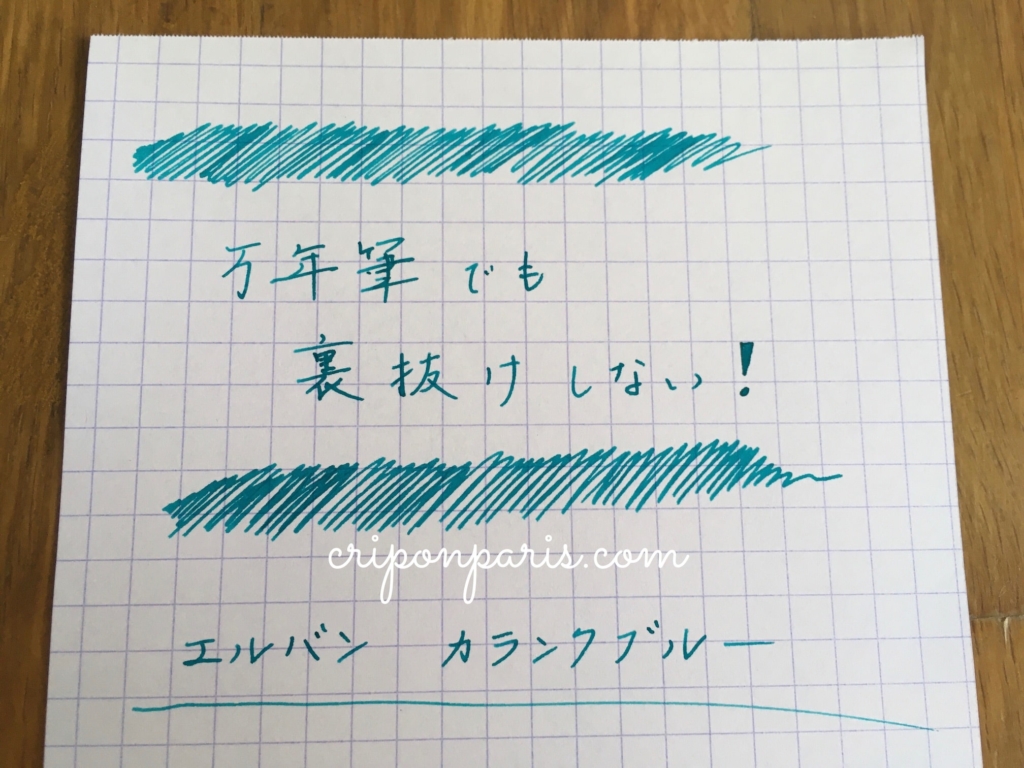 万年筆でも
裏抜けしない!
criponparis.com
エルバン カランクブルー